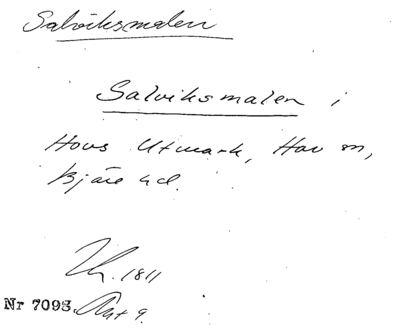 Salviksmalen
Salviksmalen i
Hovs Utmark, Hov sn,
Bjäre hd.
1811
Nr 7093. Akt 9.